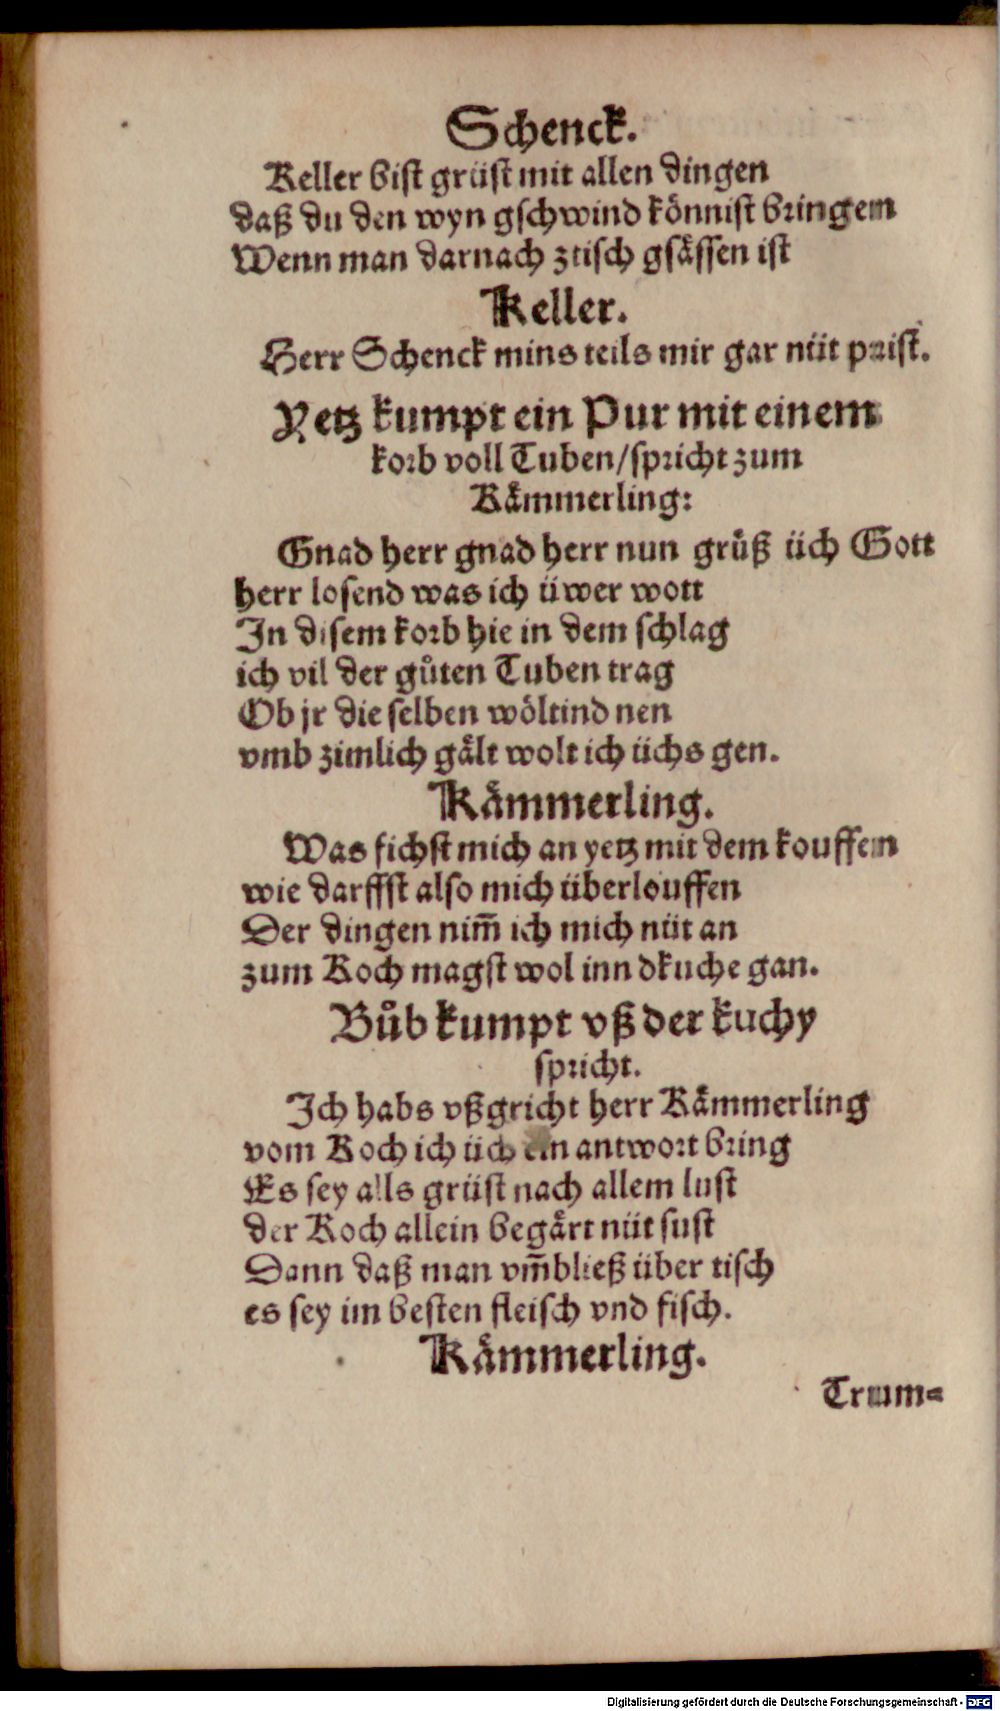 Schenck.
Keller bist grüst mit allen dingen
daß du den wyn gschwind könnist bringen
Wenn man darnach ztisch gsässen ist
Keller.
Herr Schenck mins teils mir gar nüt prist.
Yetz kumpt ein Pur mit einem
korb voll Tuben/spricht zum
Kämmerling:
Gnad herr gnad herr nun grüß üch Gott
herr losend was ich üwer wott
In disem korb hie in dem schlag
ich vil der gůten Tuben trag
Ob jr die selben wöltind nen
vmb zimlich gält wolt ich üchs gen.
Kämmerling.
Was fichst mich an yetz mit dem kouffen
wie darffst also mich überlouffen
Der dingen nim̄ ich mich nüt an
zum Koch magst wol inn dkuche gan.
Bůb kumpt vß der kuchy
spricht.
Ich habs vßgricht herr Kämmerling
vom Koch ich üch ein antwort bring
Es sey alls grüst nach allem lust
der Koch allein begärt nüt sust
Dann daß man vm̄bließ über tisch
es sey im besten fleisch vnd fisch.
Kämmerling.
Trum=
Digitalisierung gefördert durch die Deutsche Forschungsgemeinschaft - DFG